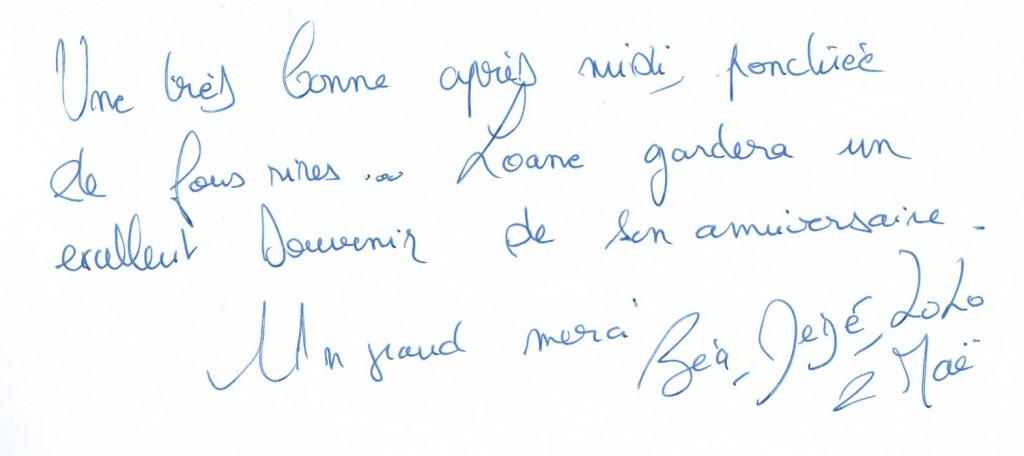 Une très bonne après midi, ponctuée
de fous rires... Loane gardera un
excellent souvenir de son anniversaire.
Un grand merci
Béa, Dédé, Lolo
2 Maë